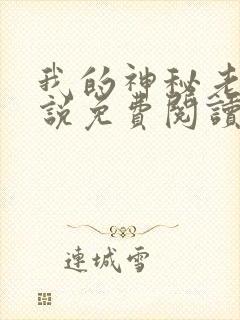 我的神秘老
說免費閱讀
連城雪